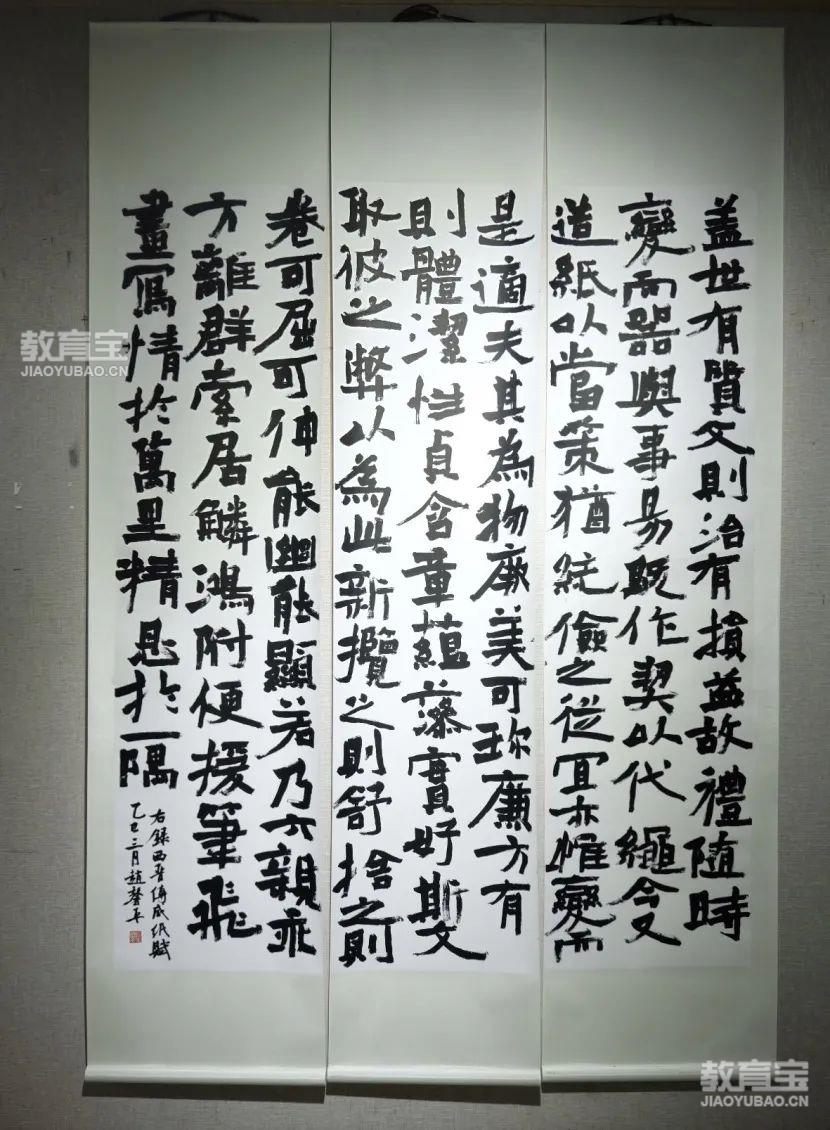 盖世有質文則治有損益故禮隨時
變而器與事易既作契以代繩今又
造紙以當策猶純儉之從宜亦惟變而
是適夫其為物厥美可珎廉方有
則體潔性貞含章蘊藻實好斯文
取彼之弊以為此新攬之則舒捨之則
卷可屈可伸能幽能顯若乃六親乖
方離群索居鱗鴻附便援筆飛
書寫情於萬里精思於一隅
右録西晋傅咸紙賦
乙巳三月趙
教育宝
JIAOYUBAO.CN
教育宝
JIAOYUBAO.CN